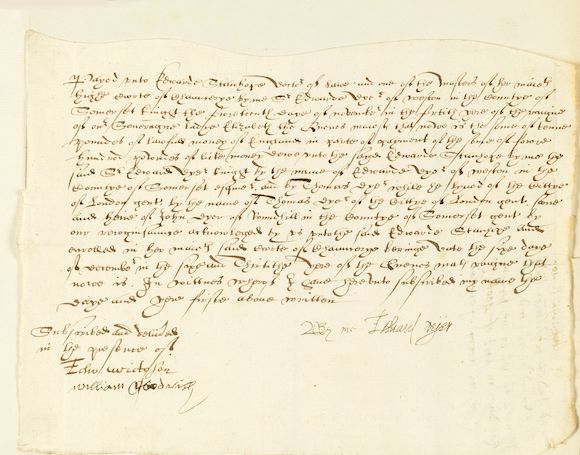 payed unto Edwarde Stanhope doctor of lawe and one of the masters of her maties
highe Courte of Chauncerye by me Sr Edwarde Dyer of Weston in the Countye of
Somerset knight the daye of November in the fortith yere of the raigne
of or Soveraigne Ladye Elizabeth the Queenes matie that nowe is the some of tenne
poundes of lawfull money of England in parte of payment of the some of
hundred poundes of like money dewe unto the sayd Edwarde Stanhope by me the
said Sr Edward Dyer knight by the name of Edwarde Dyer of Weston in the
Countye of Somerset esquier, and by Thomas Dyer of the Cittye
of London gent. by the name of Thomas Dyer of the Cittye of London gent. sonne
and heire of John Dyer of in the Countye of Somerset gent by
one recognisaunce acknowledged by us unto the said Edwarde Stanhope and
enrolled in her maties said Courte of Chauncerye bearinge date the daye
of December in the and thirtithe yere of the Queenes matie raigne that
nowe is. In wittnes whereof I have hereunto subscribed my name the
daye and yere firste above written
Subscribed and delivered
in the presence of
By me Edward Dyer
William